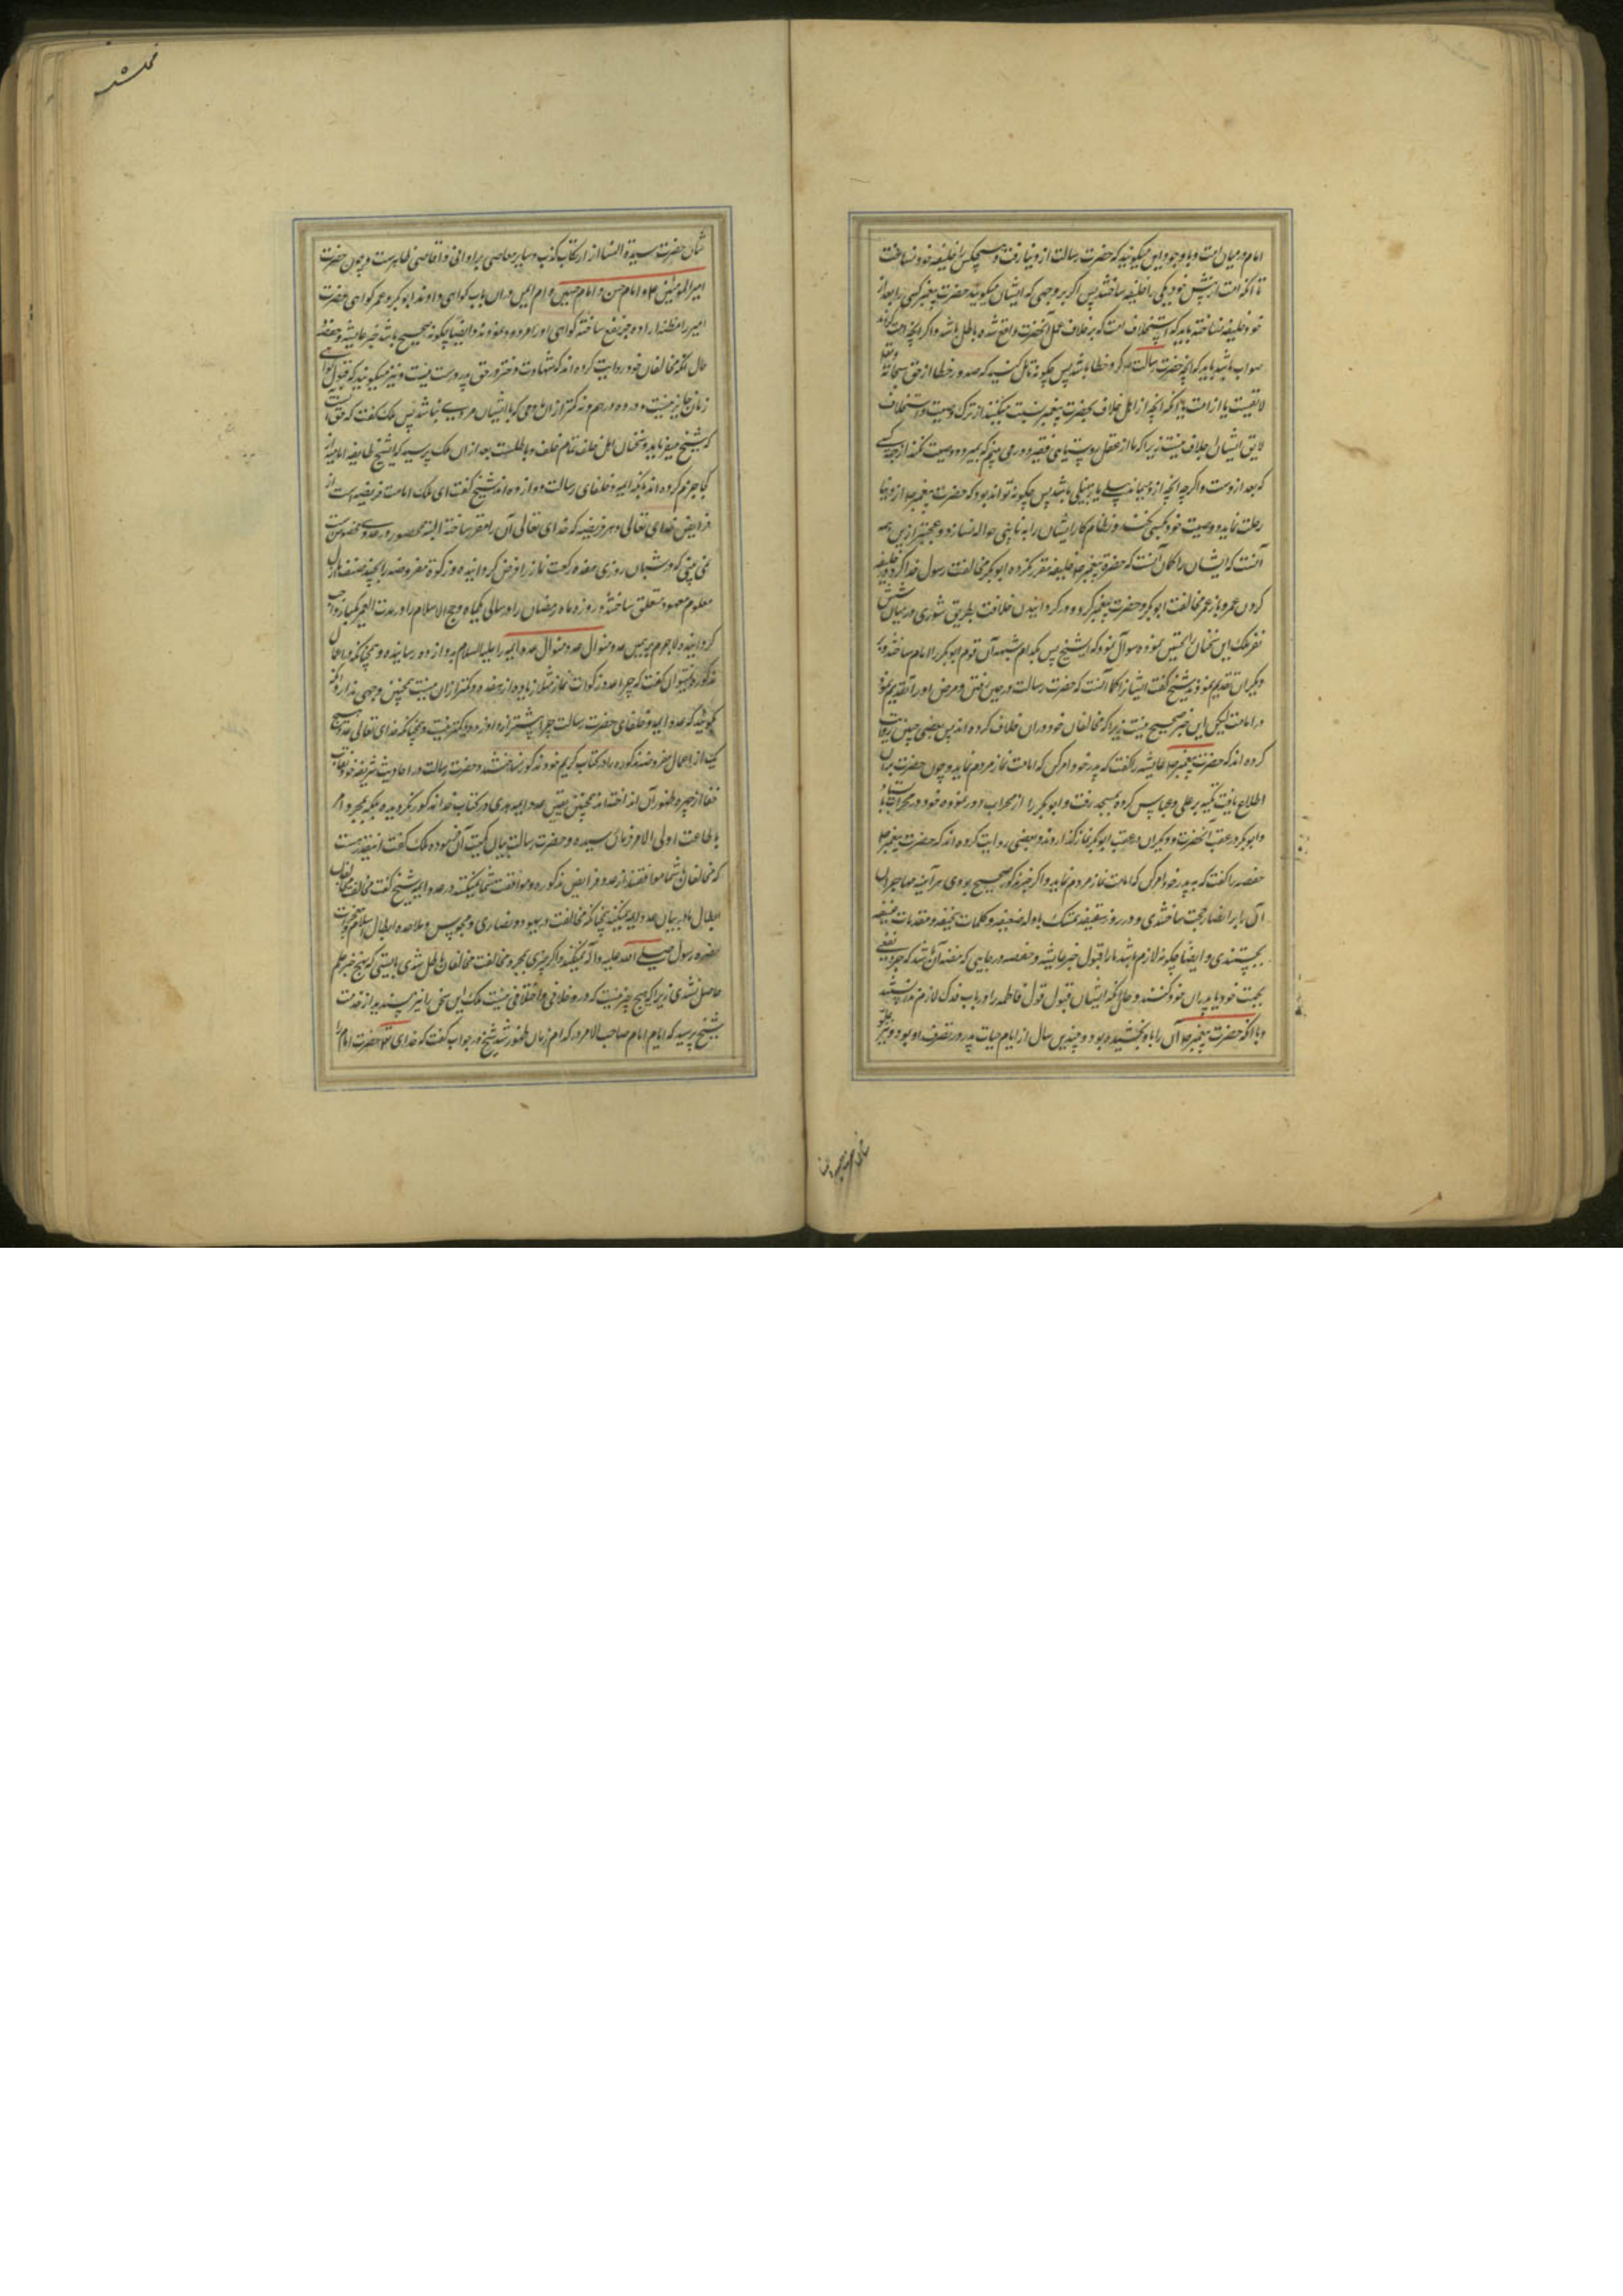 امام در میان امت و با وجود این میگویند که حضرت رسالت از دنیا رفت و هیچکس را خلیفه خود نساخت
تا آنکه امت از پیش خود یکی را خلیفه ساختند پس اگر بر وجهی که ایشان میگویند حضرت پیغمبر کسی را بعد از
خود خلیفه نساخته باید که استخلاف امت که بر خلاف عمل آنحضرت واقع شده باطل باشد و اگر آنچه امت کرده‌اند
صواب باشد باید که آنچه حضرت رسالت کرد خطا باشد پس چگونه تامل کنید که صدور خطا از حق سبحانه و تعالی
لایقست یا از امت با آنکه آنچه از اهل خلاف بحضرت پیغمبر نسبت میکنند از ترک وصیت و استخلاف
لایق ایشان اجلاف نیست زیرا که ما از عقل روستایی فقیر دور می بینم که بمیرد و وصیت نکند از جهة کسی
که بعد از وست و اگرچه آنچه از و بماند بیلی یا زنبیلی باشد پس چگونه تواند بود که حضرت پیغمبر از دنیا
رحلت نماید و وصیت خود بکسی نکند و نظام کار ایشان را به نایبی حواله نسازد و عجبتر ازین همه
آنست که ایشان را گمان آنست که حضرت پیغمبر خلیفه مقرر نکرده ابو بکر مخالفت رسول خدا کرد در خلیفه
کردن عمر و باز عمر مخالفت ابو بکر و حضرت پیغمبر کرد در گردانیدن خلافت بطریق شوری در میان شش
نفر ملک این سخنان را تحسین نموده سوال نمود که ای شیخ پس بکدام شبهه آن قوم ابو بکر را امام ساختند و بر
دیگران تقدیم نمودند شیخ گفت ایشانرا گمان آنست که حضرت رسالت در حین رفتن و مرض او را تقدیم نمود
در امامت لیکن این خبر صحیح نیست زیرا که مخالفان خود در ان خلاف کرده اند پس بعضی چنین روایت
کرده اند که حضرت پیغمبر عایشه را گفت که پدر خود امر کن که امامت نماز مردم نماید و چون حضرت بدان
اطلاع یافت تکیه بر علی و عباس کرده بمسجد رفت و ابو بکر را از محراب دور نموده خود در محراب بایستاد و
و ابو بکر در عقب آنحضرت و دیگران در عقب ابو بکر نماز گذاردند و بعضی روایت کرده اند که حضرت پیغمبر
حفصه را گفت که به پدر خود امر کن که امامت نماز مردم نماید و اگر خبر مذکور صحیح بودی هر آینه مهاجران
آن را بر انصار حجت ساختندی و در روز سقیفه تمسک بادله ضعیفه و کلمات سخیفه و مقدمات عنیفه
بجستندی و ایضا چگونه لازم باشد ما را قبول خبر عایشه و حفصه در جایی که متضمن آن باشد که جر نفعی
بجهت خود یا پدران خود کنند و حال آنکه ایشان قبول قول فاطمه را در باب فدک لازم ندانستند
و با آنکه حضرت پیغمبر آن را باو بخشیده بود و چندین سال از ایام حیات پدر در تصرف او بود و نیز
شان حضرت سیدة النسا از ارتکاب کذب و سایر معاصی بر ادانی و اقاصی ظاهرست و چون حضرت
امیر المومنین علی و امام حسن و امام حسین و ام ایمن در ان باب گواهی دادند ابو بکر و عمر گواهی حضرت
امیر را مظنه اراده جر نفع ساخته گواهی او را مردود نمودند و ایضا چگونه صحیح باشد خبر عایشه و حفصه
حال آنکه مخالفان خود روایت کرده اند که شهادت دختر در حق پدر درست نیست و نیز میگویند که قبول گواهی
زنان جایز نیست در ده درهم و نه کمتر از ان مادامی که با ایشان مردی نباشد پس ملک گفت که حق آنست
که شیخ میفرماید و سخنان اهل خلف تمام خلف و باطلست بعد ازان ملک پرسید که ای شیخ طایفه امامیه از
کجا جزم کرده اند بآنکه ایمه و خلفای رسالت دوازده اند شیخ گفت ای ملک امامت فریضه است از
فرایض خدای تعالی و هر فریضه که خدای تعالی آن را مقرر ساخته البته محصور در عددی مخصوص است
نمی بینی که در شبان روزی هفده رکعت نماز را فرض گردانیده و زکوة مفروضه را بچند صنف از مال
معلوم معهود متعلق ساخته و روزه ماه رمضان را در سالی یکماه و حج الاسلام را در مدت العمر یکبار واجب
گردانیده لاجرم بر همین عدد منوال عدد ایمه را علیه السلام بدوازده رسانیده و همچنانکه در اعمال
مذکوره نتوان گفت که چرا عدد رکعات نماز مثلا زیاده از هفده و کمتر از ان نیست همچنین وجهی ندارد آنکه
گویند که عدد ایمه و خلفای حضرت رسالت چرا بیشتر از دوازده و یا کمتر نیست و همچنانکه خدای تعالی عدد هیچ
یک از اعمال مفروضه مذکوره را در کتاب کریم خود مذکور نساخته و حضرت رسالت در احادیث شریفه خود نقاب
خفا از چهره ظهور آن انداخته همچنین تعیین عدد ایمه هدی در کتاب خدا مذکور نگردیده بلکه بمجرد امر
باطاعت اولی الامر فرمان رسیده و حضرت رسالت بیان کمیت آن نموده ملک گفت اینقدر هست
که مخالفان شما موافقند در عدد فرایض مذکوره و موافقت شما نمیکنند در عدد ایمه شیخ گفت مخالفت مخالفان
ابطال ما در بیان عدد ایمه نمیکند چنانکه مخالفت یهود و نصاری و مجوس و ملاحده ابطال اسلام و معجزات
حضرت رسول صلی الله علیه و آله نمیکند و اگر چیزی بمجرد مخالفت مخالفان باطل شدی بایستی که هیچ خبر علم
حاصل نشدی زیرا که هیچ چیز نیست که در و خلافی و اختلافی نیست ملک این سخن را نیز پسندیده از خدمت
شیخ پرسید که ایام امام صاحب الامر در کدام زمان ظهور شد شیخ در جواب گفت که خدای تعالی حضرت امام را